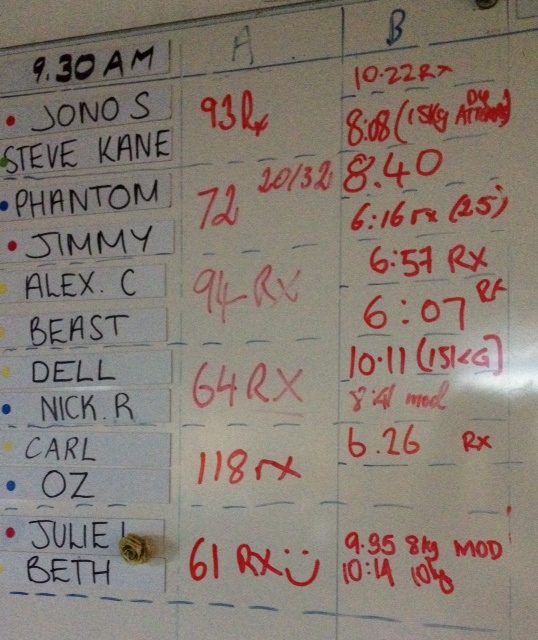 A B
9.30 AM
10.22 Rx
JONO S 93 Rx 8:08 (15kg
STEVE KANE 8.40
PHANTOM 72 20/32 6:16 rx (25)
JIMMY 6:57 RX
ALEX. C 94 RX 6:07 RX
BEAST
DELL 64 RX 10.11 (15KG)
NICK. R 8:41 mod
CARL 118 rx 6.26 Rx
OZ
JULIE 61 RX 9.35 8kg MOD
BETH 10:14 10kg